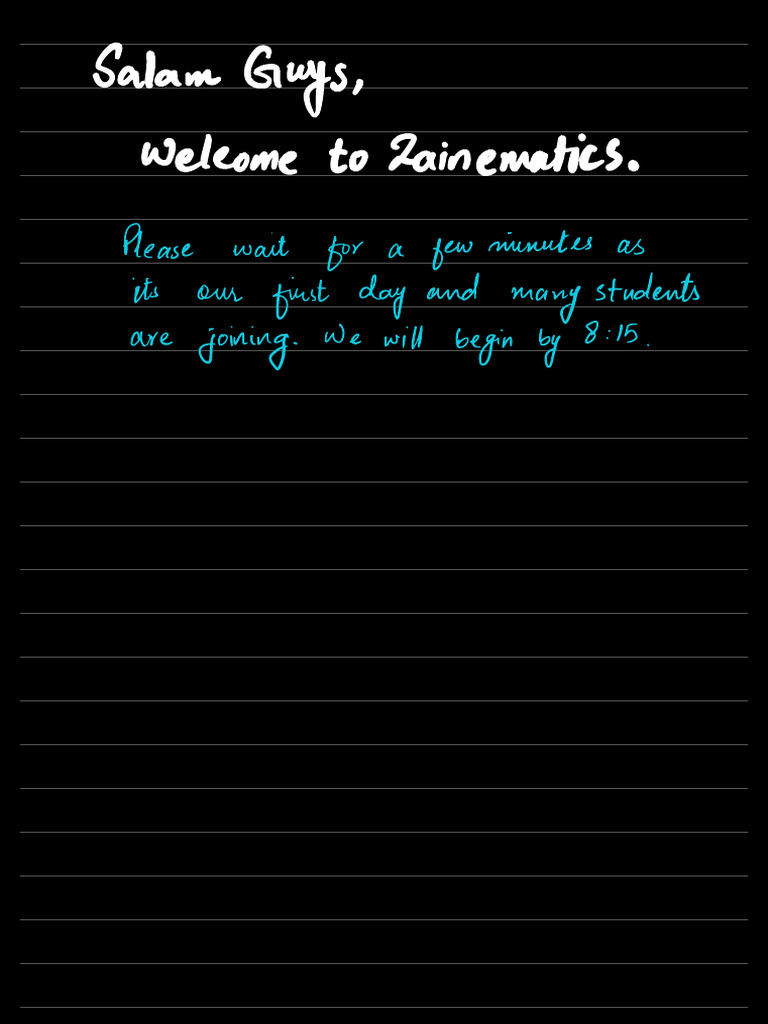 Salam Guys,
Welcome to Zainematics.
Please wait for a few minutes as
its our first day and many students
are joining. We will begin by 8:15.